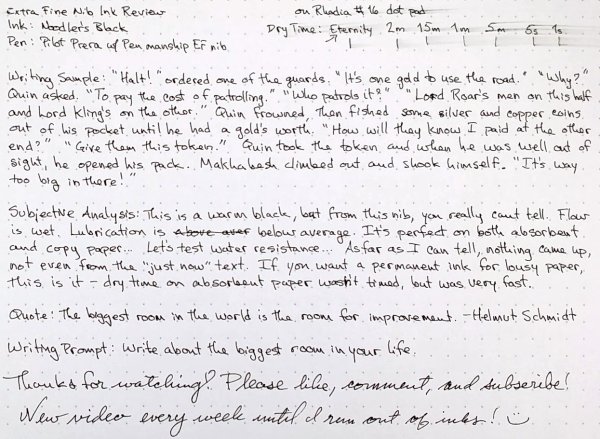 Extra Fine Nib Ink Review on Rhodia #16 dot pad
Ink: Noodler's Black Dry Time: Eternity 2m 15m 1m 5m 5s 1s
Pen: Pilot Prera w/ Penmanship EF nib
Writing Sample: "Halt!" ordered one of the guards. "It's one gold to use the road." "Why?"
Quin asked. "To pay the cost of patrolling." "Who patrols it?" "Lord Roar's men on this half
and Lord Kling's on the other." Quin frowned, then fished some silver and copper coins
out of his pocket until he had a gold's worth. "How will they know I paid at the other
end?" "Give them this token." Quin took the token and when he was well out of
sight, he opened his pack. Makhabesh climbed out and shook himself. "It's way
too big in there!"
Subjective Analysis: This is a warm black, but from this nib, you really cant tell. Flow
is wet. Lubrication is above aver below average. It's perfect on both absorbent
and copy paper... Let's test water resistance... As far as I can tell, nothing came up,
not even from the "just now" text. If you want a permanent ink for lousy paper,
this is it – dry time on absorbent paper wasn't timed, but was very fast.
Quote: The biggest room in the world is the room for improvement. -Helmut Schmidt
Writing Prompt: Write about the biggest room in your life.
Thanks for watching! Please like, comment, and subscribe!
New video every week until I run out of inks! :)